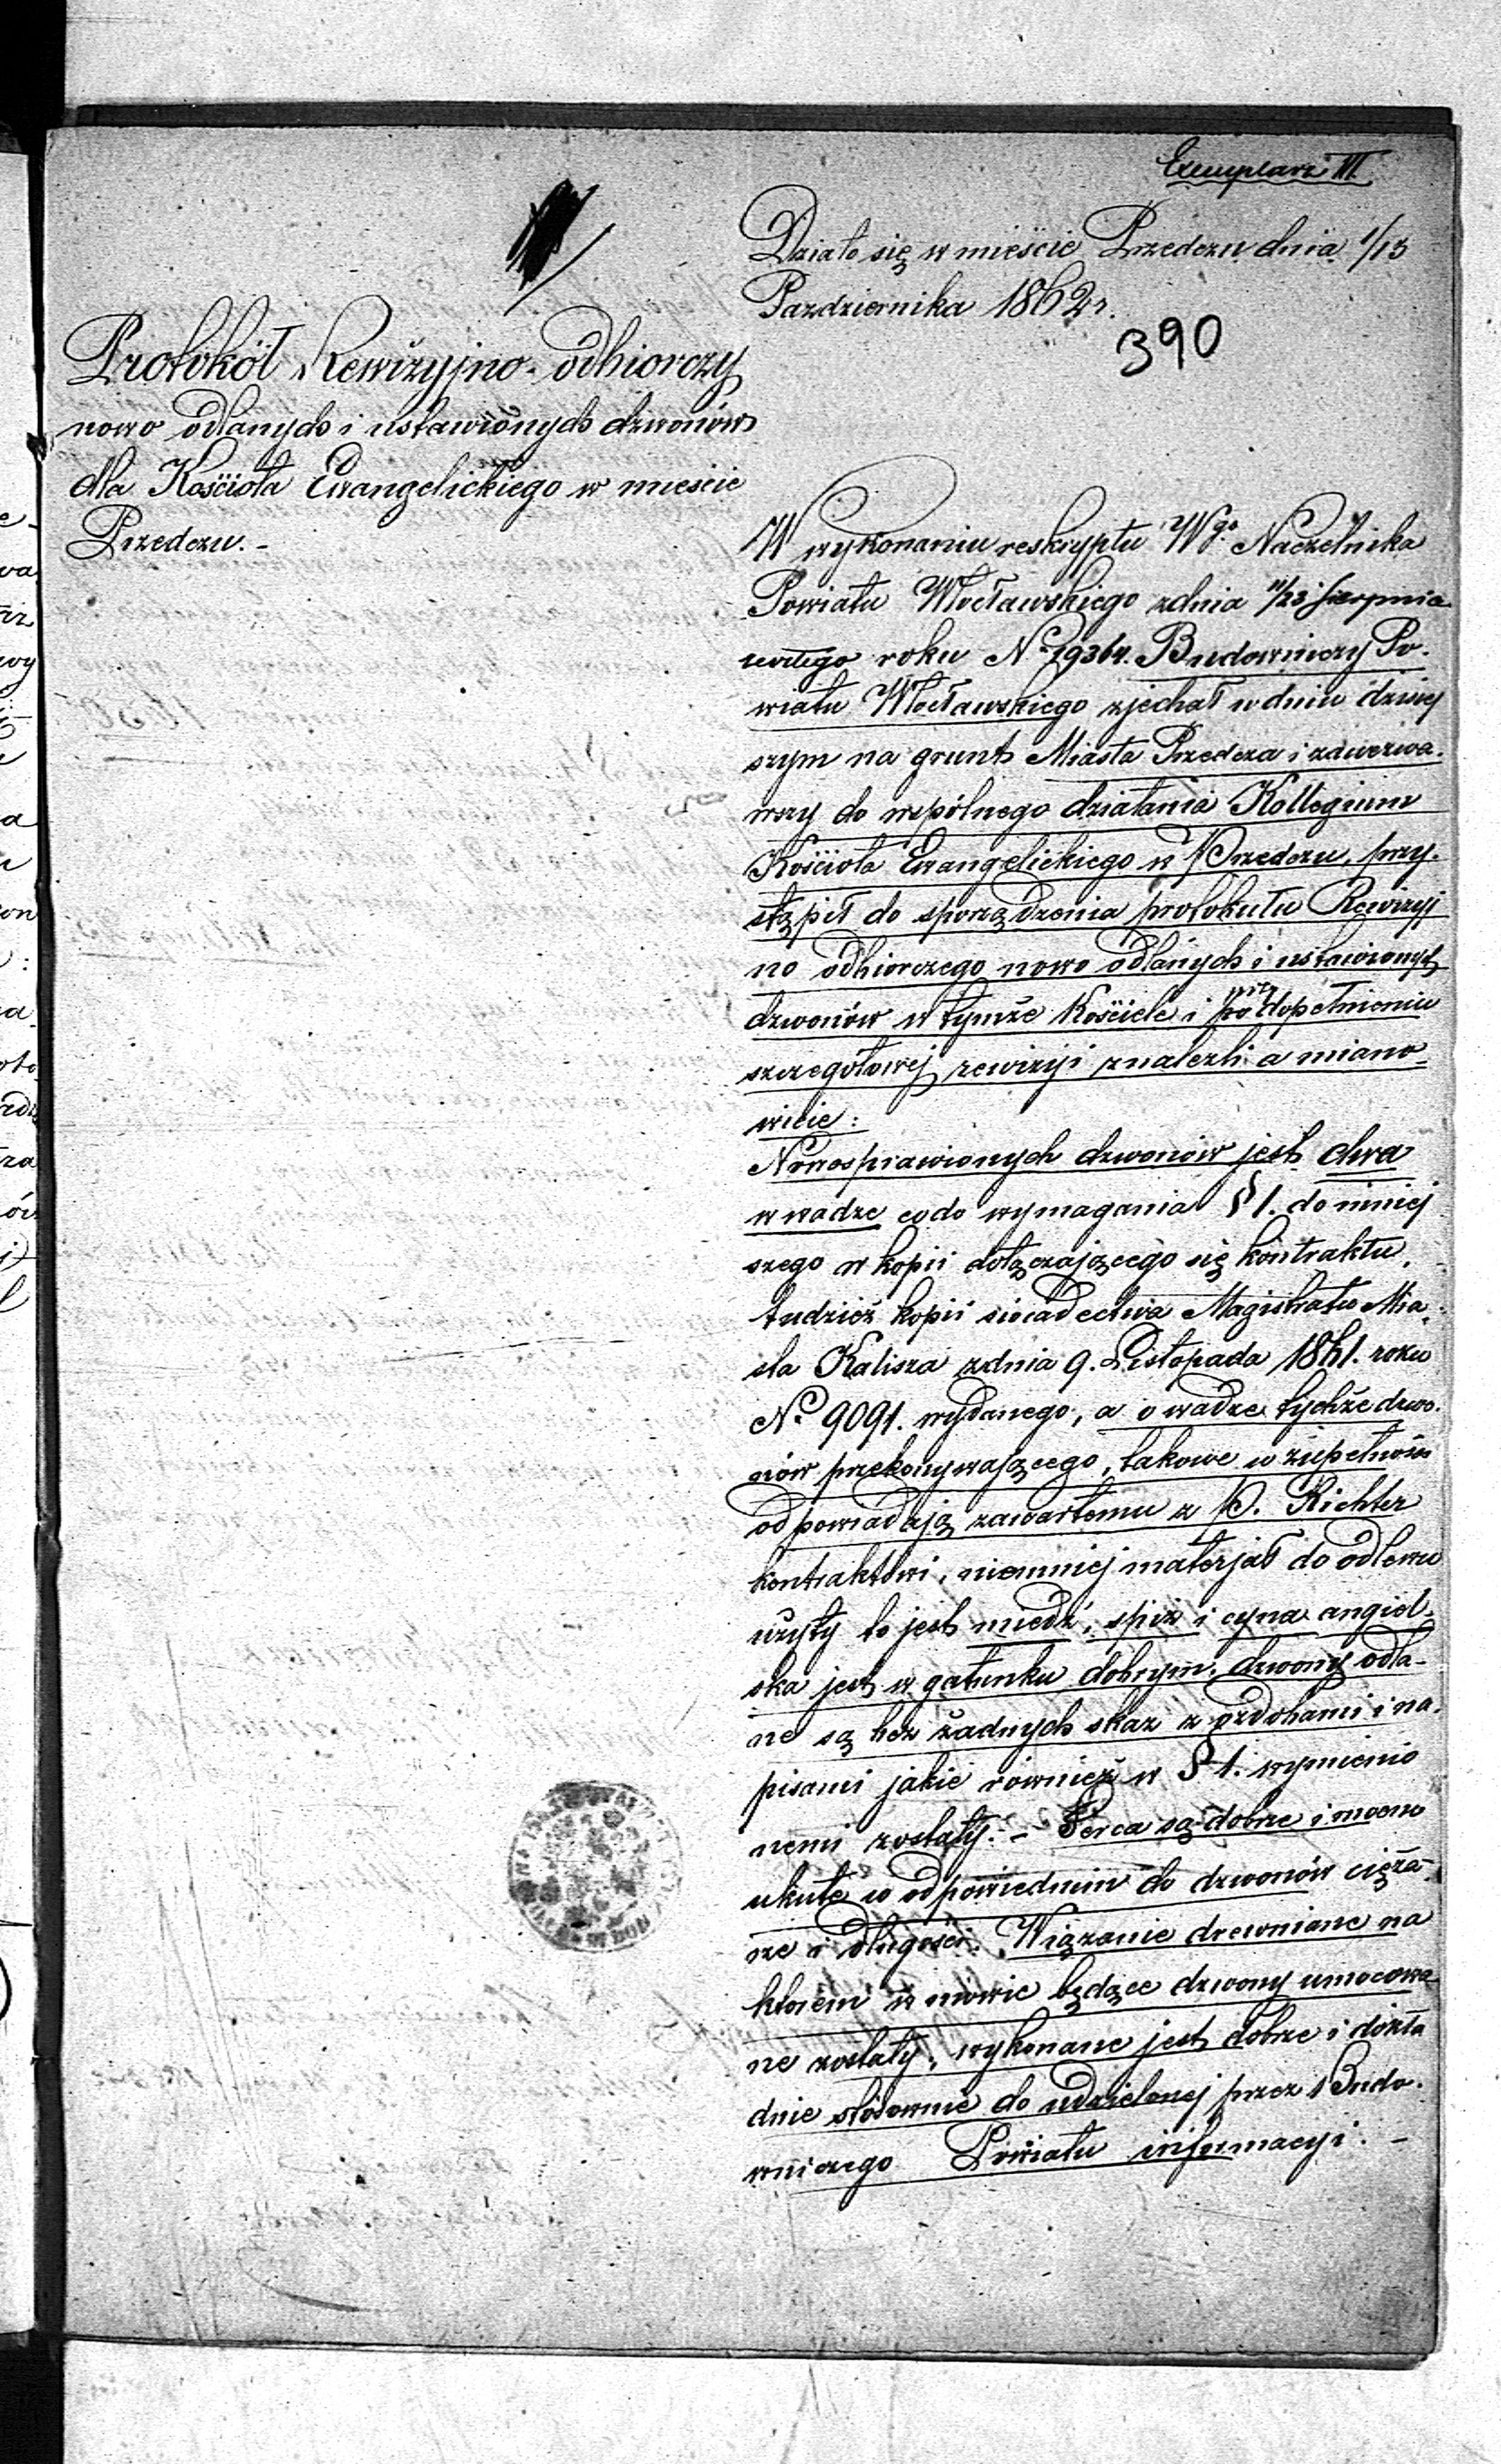 Exemplarz III
Działo się w mieście Przedczu dnia 1/13
Pazdziernika 1862 r.
390
Protokół Rewizyjno-odbiorczy
nowo odlanych i ustawionych dzwonów
dla Kościoła Ewangelickiego w mieście
Przedczu.-
W wykonaniu reskryptu Wgo Naczelnika
Powiatu Włocławskiego z dnia 11/23 Sierpnia
roku No 19364. Budowniczy Po-
wiatu Włocławskiego zjechał w dniu dzisiej
szym na grunt Miasta Przedcza i zawezwa-
wszy do wspólnego działania Kollegium
Kościoła Ewangelickiego w Przedczu, przy-
stąpił do sporządzenia protokułu Rewizyj
no odbiorczego nowo odlanych i ustawionych
dzwonów w tymże Kościele i przy dopełnieniu
szczegółowej rewizyi znalezli a miano-
wicie:
Nowosprawionych dzwonów jest dwa
w wadze co do wymagania § 1. do niniej
szego w kopii dołączającego się kontraktu,
tudzież kopii świadectwa Magistratu Mia-
sta Kalisza z dnia 9. Listopada 1861. roku
No 9091. wydanego, a o wadze tychże dzwo-
nów przekonywającego, takowe w zupełności
odpowiadają zawartemu z P. Richter
kontraktowi, niemniej materjał do odlewu
użyty to jest miedź, spiż i cyna angiel-
ska jest w gatunku dobrym, dzwony odla-
ne są bez żadnych skaz z ozdobami i na-
pisami jakie również w § 1. wymienio
nemi zostały. - Serca są dobrze i mocno
ukute w odpowiednim do dzwonów cięża-
rze i długości. Wiązanie drewniane na
którem w mowie będące dzwony umocowa-
ne zostały, wykonane jest dobrze i dokła
dnie stósownie do udzielonej przez Budo-
wniczego Powiatu informacyi. -